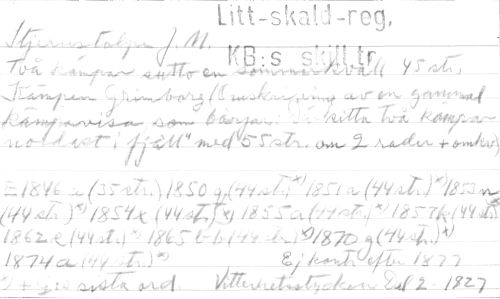 Litt-skald-reg,
Stjernstolpe J. M.
KB:s skill.tr
Två kämpar sutto en sommerkväll 45 str.
Kämpen Grimborg (Omskrivning av en gammal
kämpavisa som börjar: De sitta två kämpar
nordast i fjäll" med 55 str. om 2 rader + omkv)
E 1846 a (35 str.) 1850 g (44 str) *) 1851 a (44 str.) *) 1853 n
(44 str.) *) 1854 x (44 str) *) 1855 a (44 str.) *) 1857 k (44 str)
1862 e (44 str.) *) 1865 bb (44 str.) *) 1870 g (44 str.) *)
1874 a (44 str.) *) Ej kontr efter 1877
sista ord. Vitterhetsstycken Del 2. 1827